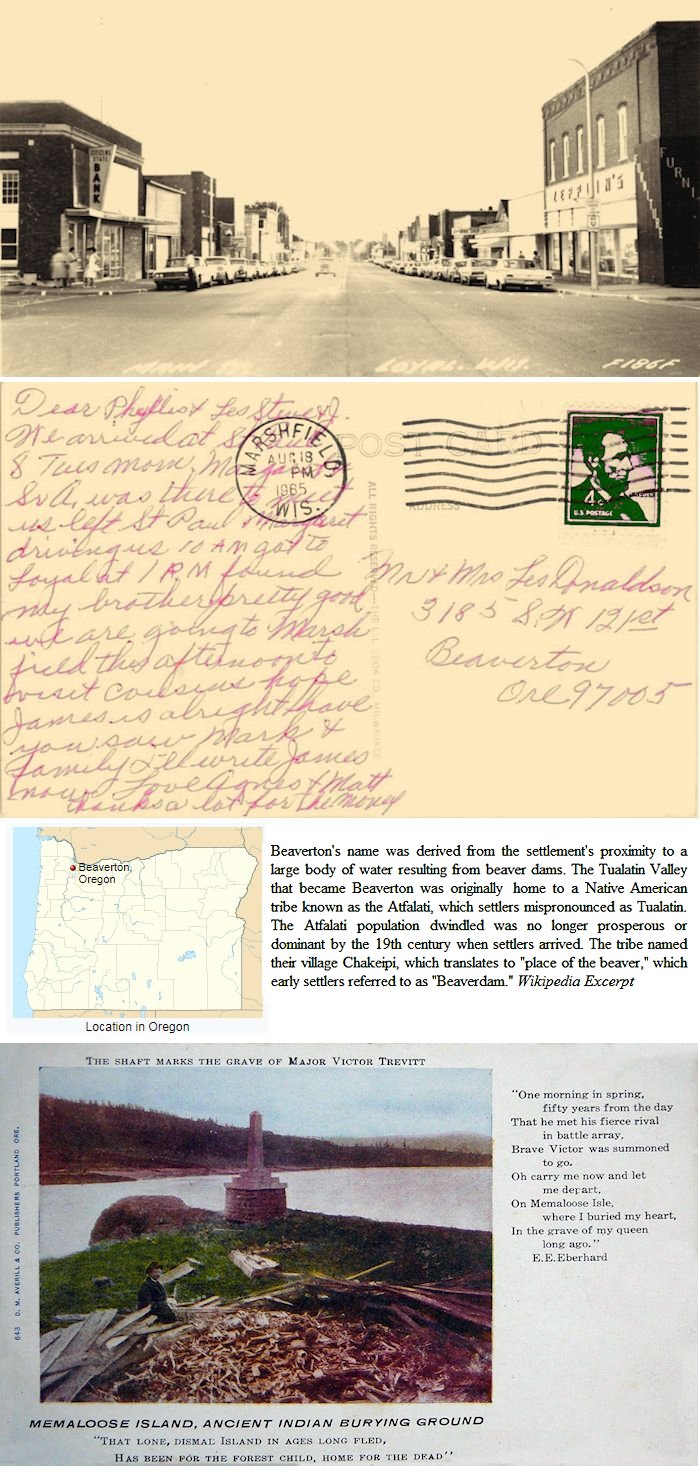 CITIZENS
STATE
BANK
ZEPPLIN'S
FURN
MAIN
LOYAL. WIS.
F186F
Dear Phyllis & Les Steve & J.
We arrived at St Paul
8 Tues morn. Margaret
was there to meet
us left St Paul Margaret
driving us 10 AM got to
Loyal at 1 P.M found
my brother pretty good
we are going to Marsh
field this afternoon to
visit cousins hope
James is alright have
you saw Mark &
family I'll write James
now. Love Agnes & Matt
thanks a lot for the money
MARSHFIELD,
AUG 18
PM
1965
WIS.
POST CARD
ADDRESS
4c
U.S. POSTAGE
ALL RIGHTS RESERVED - THE L.L. COOK CO. MILWAUKEE
Mr & Mrs Les Donaldson
3185 S.W 121st
Beaverton
Ore 97005
Beaverton,
Oregon
Location in Oregon
Beaverton's name was derived from the settlement's proximity to a
large body of water resulting from beaver dams. The Tualatin Valley
that became Beaverton was originally home to a Native American
tribe known as the Atfalati, which settlers mispronounced as Tualatin.
The Atfalati population dwindled was no longer prosperous or
dominant by the 19th century when settlers arrived. The tribe named
their village Chakeipi, which translates to "place of the beaver," which
early settlers referred to as "Beaverdam." Wikipedia Excerpt
THE SHAFT MARKS THE GRAVE OF MAJOR VICTOR TREVITT
643 D. M. AVERILL & CO. PUBLISHERS PORTLAND ORE.
"One morning in spring,
fifty years from the day
That he met his fierce rival
in battle array,
Brave Victor was summoned
to go.
Oh carry me now and let
me depart,
On Memaloose Isle,
where I buried my heart,
In the grave of my queen
long ago."
E.E.Eberhard
MEMALOOSE ISLAND, ANCIENT INDIAN BURYING GROUND
"THAT LONE, DISMAL ISLAND IN AGES LONG FLED,
HAS BEEN FOR THE FOREST CHILD, HOME FOR THE DEAD"